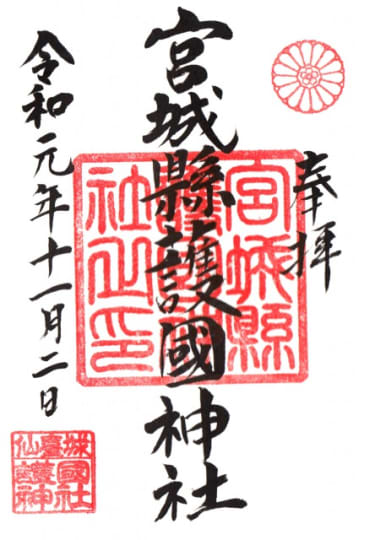 奉拝
宮城縣護國神社
令和元年十一月二日
宮城縣
社之印
仙臺城
護國
神社